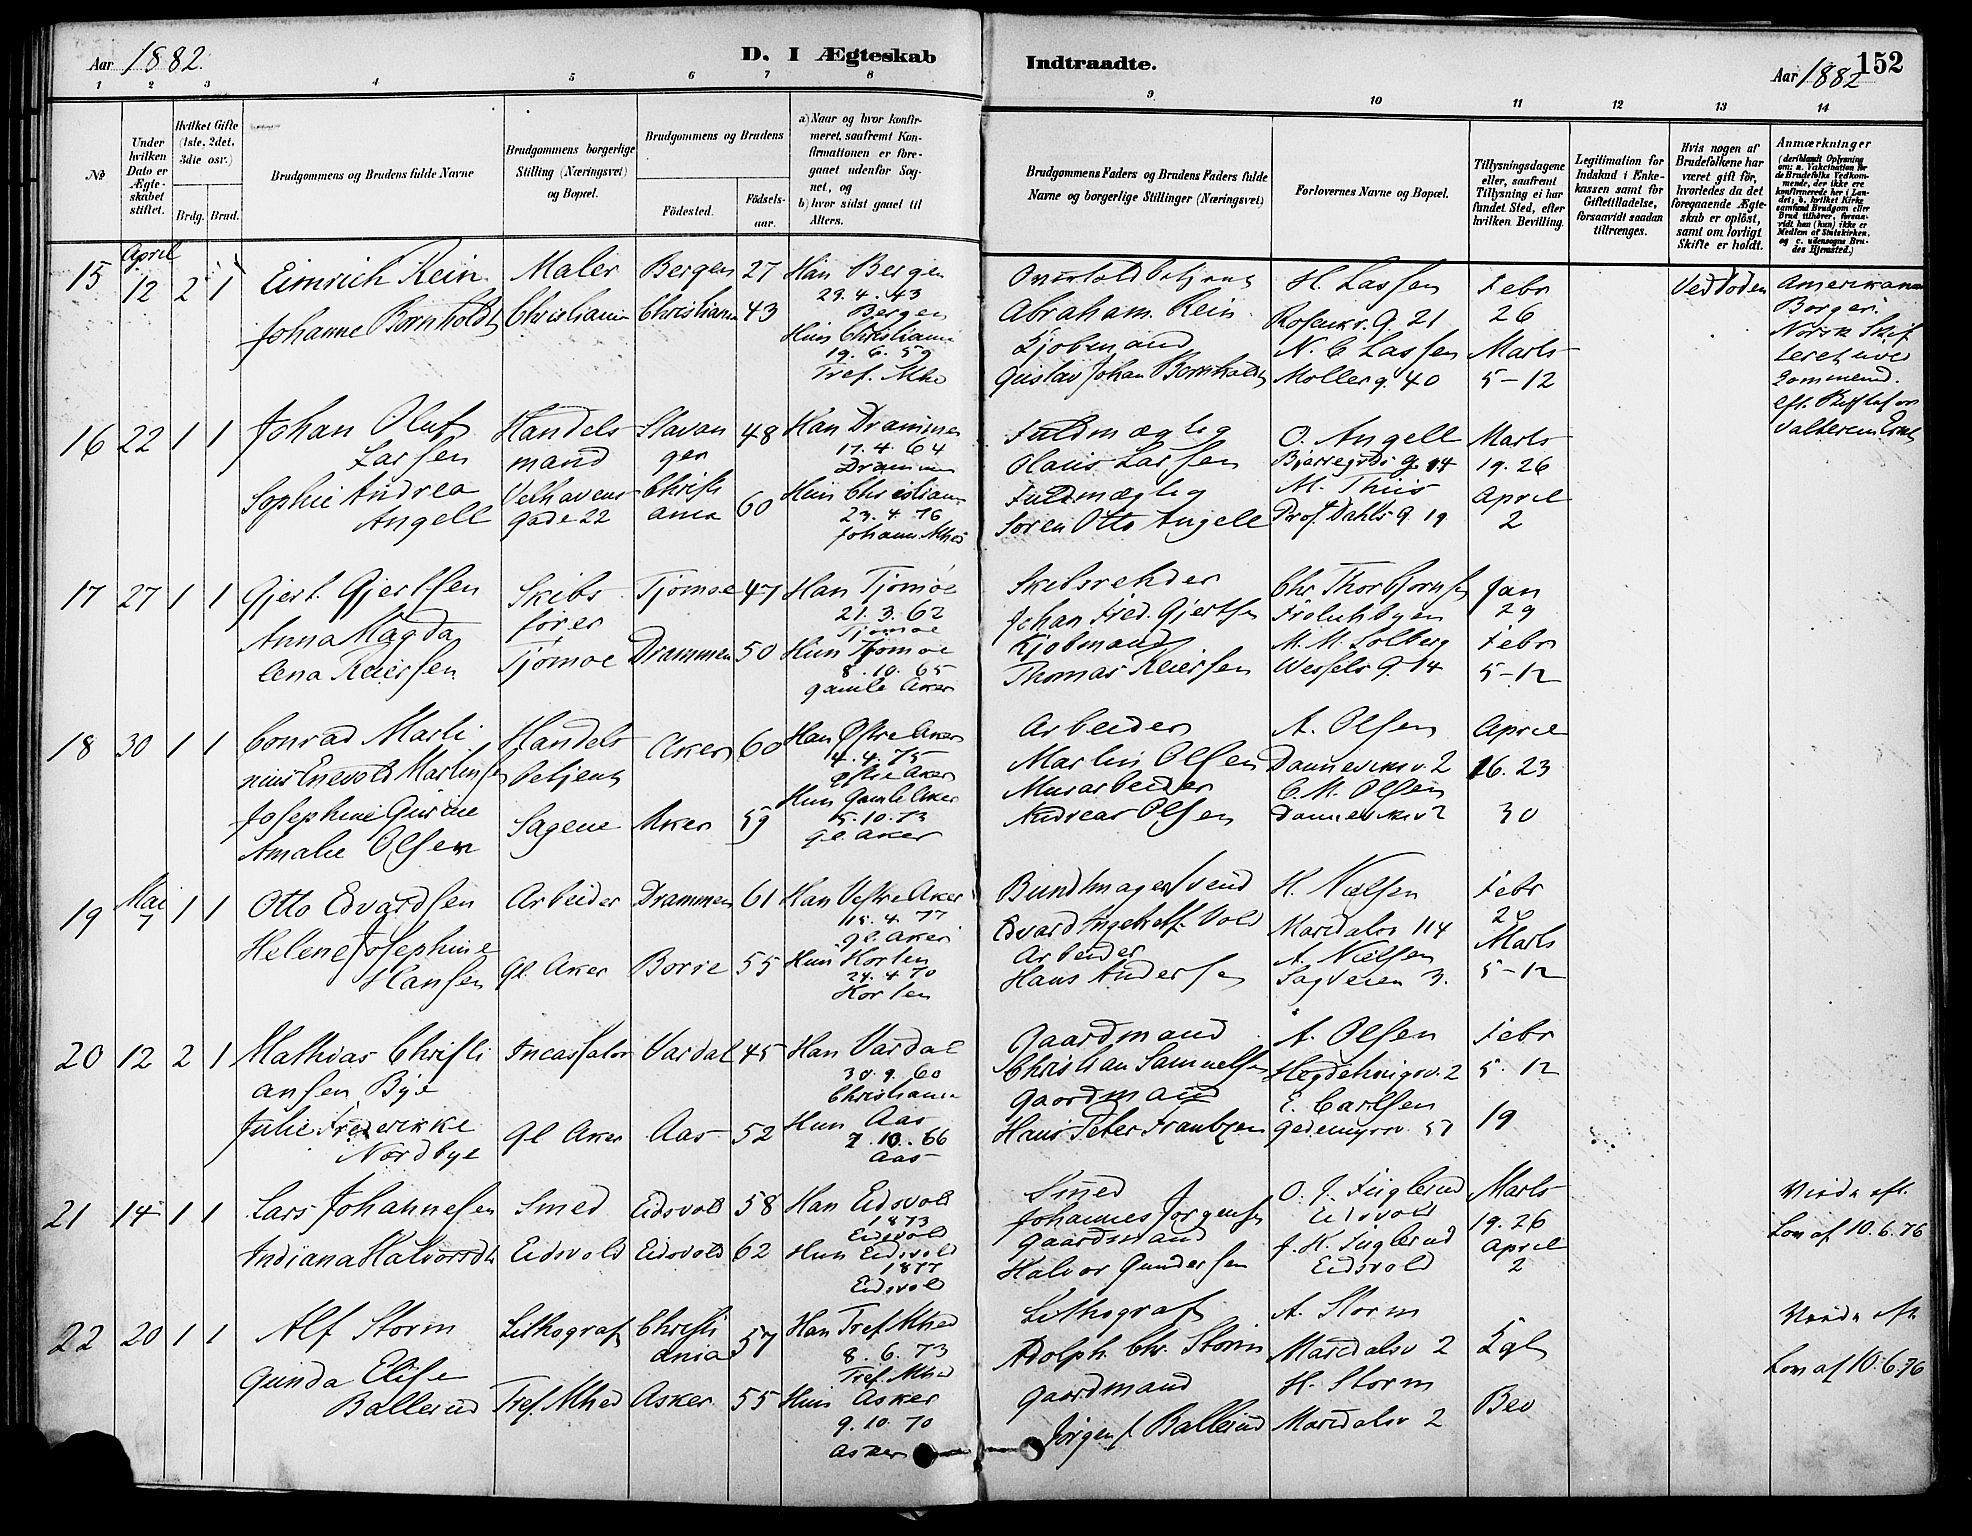 Aar 1882.
D. I Ægteskab
Indtraadte.
Aar 1882
152
1 2 3 4 5 6 7 8 9 10 11 12 13 14
No
Under hvilken Dato er Ægteskabet stiftet.
Hvilket Gifte (1ste, 2det, 3die osv.)
Brdg. Brud.
Brudgommens og Brudens fulde Navne
Brudgommens borgerlige Stilling (Næringsvei) og Bopæl.
Brudgommens og Brudens
Födested.
Födsels-aar.
a) Naar og hvor konfirmeret, saafremt Konfirmationen er foregaaet udenfor Sognet, og
b) hvor sidst gaaet til Alters.
Brudgommens Faders og Brudens Faders fulde Navne og borgerlige Stillinger (Næringsvei)
Forlovernes Navne og Bopæl.
Tillysningsdagene eller, saafremt Tillysning ei har fundet Sted, efter hvilken Bevilling.
Legitimation for Indskud i Enkekassen samt for Giftetilladelse, forsaavidt saadan tiltrænges.
Hvis nogen af Brudefolkene har været gift för, hvorledes da det foregaaende Ægteskab er oplöst, samt om lovligt Skifte er holdt.
Anmærkninger
15 April 12 2 1
Eimrich Rein Maler Bergen 27 Han Bergen
29.4.43
Bergen
Johanne Bornholdt Christiania Christiania 43 Hun Christiania
19.6.59
Tref. Mhe
Abraham Rein
Kjøbmand
Gustav Johan Bornholdt
H. Lassen
Rosenkr. g. 21
N. C. Lassen
Møllerg. 40
Febr
26
Marts
5-12
Ved Døden
Amerikansk
Borger.
Norsk
16 22 1 1
Johan Oluf Larsen Handelsmand Stavanger 48 Han Drammen
17.4.64
Drammen
Sophie Andrea Angell Velhavens Gade 22 Christiania 60 Hun Christiania
23.4.76
Johann. Mhed
Fuldmægtig
Olaus Larsen
Fuldmægtig
Søren Otto Angell
O. Angell
Bjerregrds g. 14
M. Thiis
Prof. Dahls g. 19
Marts
19.26
April
2
17 27 1 1
Gjert Gjertsen Skibsfører Tjømøe 47 Han Tjømøe
21.3.62
Tjømøe
Anna Magdalena Reiersen Tjømøe Drammen 50 Hun Tjømøe
8.10.65
gamle Aker
Skibsrehder
Johan Fred. Gjertsen
Kjøbmand
Thomas Reiersen
Chr. Thorbjørnsen
M. M. Solberg
Wessels g. 14
Jan
29
Febr
5-12
18 30 1 1
Conrad Martinius Enevold Martinsen Handelsbetjent Aker 60 Han Østre Aker
4.4.75
Østre Aker
Josephine Gurine Amalie Olsen Sagene Aker 59 Hun Gamle Aker
5.10.73
Gl. Aker
Arbeider
Martin Olsen
Murarbeider
Andreas Olsen
A. Olsen
Dannevigsv. 2
C. M. Olsen
Dannevigsv 2
April
16.23
30
19 Mai 7 1 1
Otto Edvardsen Arbeider Drammen 61 Han Vestre Aker
15.4.77
Gl. Aker
Helene Josephine Hansen Gl. Aker Borre 55 Hun Horten
24.4.70
Horten
Bundtmagersvend
Arbeider
Hans Andersen
H. Nielsen
Maridalsv 114
A. Nielsen
Sagveien 3.
Febr
26
Marts
5-12
20 12 2 1
Mathias Christiansen Bye Incassator Vardal 45 Han Vardal
30.9.60
Christiania
Julie Frederikke Nordbye Gl Aker Aas 52 Hun Aas
7.10.66
Aas
Gaardmand
Christian Samuelsen
Gaardmand
Hans Peter Frantzen
A. Olsen
Hegdehaugsv. 2
E. Carlsen
Gedemyrsv. 57
Febr
5.12
19
21 14 1 1
Lars Johannesen Smed Eidsvold 58 Han Eidsvold
1873
Eidsvold
Indiana Halvorsdtr Eidsvold Eidsvold 62 Hun Eidsvold
1877
Eidsvold
Smed
Johannes Jørgensen
Gaardmand
Halvor Gundersen
O. J. Fuglerud
Eidsvold
J. H. Fuglerud
Eidsvold
Marts
19.26
April
2
Viede eft.
Lov af 10.6.76
22 20 1 1
Alf Storm Lithograf Christiania 57 Han Tref Mhed
8.6.73
Tref. Mhed
Gunda Elise Ballerud Tref. Mhed Asker 55 Hun Asker
9.10.70
Asker
Lithograf
Adolph Chr. Storm
Gaardmand
Jørgen J. Ballerud
A. Storm
Maridalsv 2
H. Storm
Maridalsv 2
Kgl
Bev
Viede eft
Lov af 10.6.76